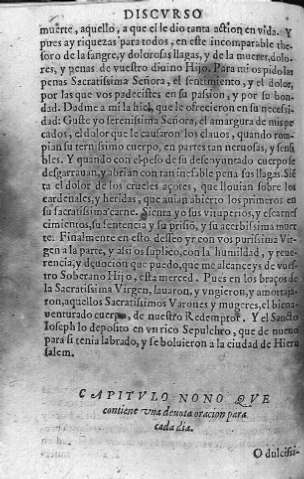 DISCVRSO
muerte, aquello, a que el le dio tanta action en vida. Y
pues ay riquezas para todos, en este incomparable the-
soro de la sangre, y dolorosas llagas, y de la muerte, dolo-
res, y penas de vuestro diuino Hijo. Para mi os pido las
penas Sacratissima Señora, el sentimiento, y el dolor,
por las que vos padecistes en su passion, y por su bon-
dad. Dadme a mi la hiel, que le ofrecieron en su necessi-
dad: Guste yo serenissima Señora, el amargura de mis pe-
cados, el dolor que le causaron los clauos, quando rom-
pian su ternissimo cuerpo, en partes tan neruosas, y sensi-
bles. Y quando con el peso de su desenyuntado cuerpo se
desgarrauan, y abrian con tan inefable pena sus llagas. Siē
ta el dolor de los crueles açotes, que llouian sobre los
cardenales, y heridas, que auian abierto los primeros en
su sacratissima carne. Sienta yo sus vituperios, y escarne
cimientos, su sentencia y su prisiō, y su acerbissima muer
te. Finalmente en esto desseo yr con vos purissima Vir-
gen a la parte, y assi os suplico, con la humildad, y reue-
rencia, y deuocion que puedo, que me alcanceys de vues-
tro Soberano Hijo, esta merced. Pues en los braços de
la Sacratissima Virgen, lauaron, y vngieron, y amortaja-
ron, aquellos Sacratissimos Varones y mugeres, el bien a-
uenturado cuerpo, de nuestro Redemptor. Y el Sancto
Ioseph lo deposito en vn rico Sepulchro, que de nueuo
para si tenia labrado, y se boluieron a la ciudad de Hieru
salem.
CAPITVLO NONO QVE
contiene vna deuota oracion para
cada dia.
O dulcissi-